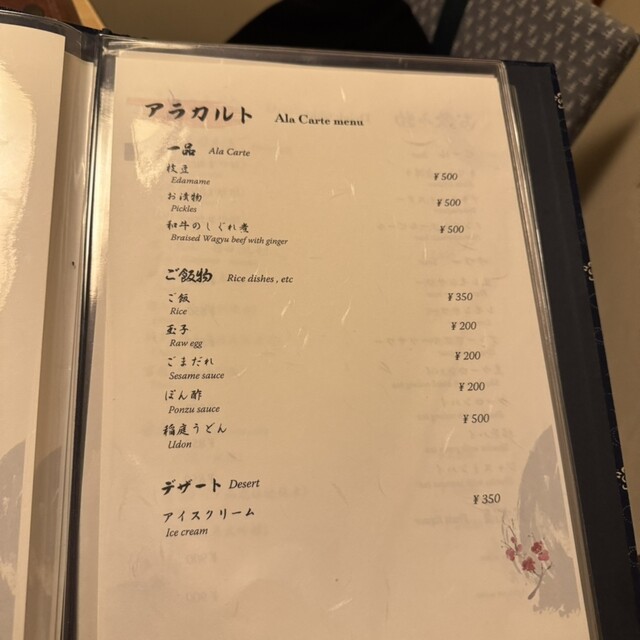 アラカルト Ala Carte menu
一品 Ala Carte
枝豆 ¥500
Edamame
お漬物 ¥500
Pickles
和牛のしぐれ煮 ¥500
Braised Wagyu beef with ginger
ご飯物 Rice dishes , etc
ご飯 ¥350
Rice
玉子 ¥200
Raw egg
ごまだれ ¥200
Sesame sauce
ぽん酢 ¥200
Ponzu sauce
稲庭うどん ¥500
Udon
デザート Desert
アイスクリーム ¥350
Ice cream